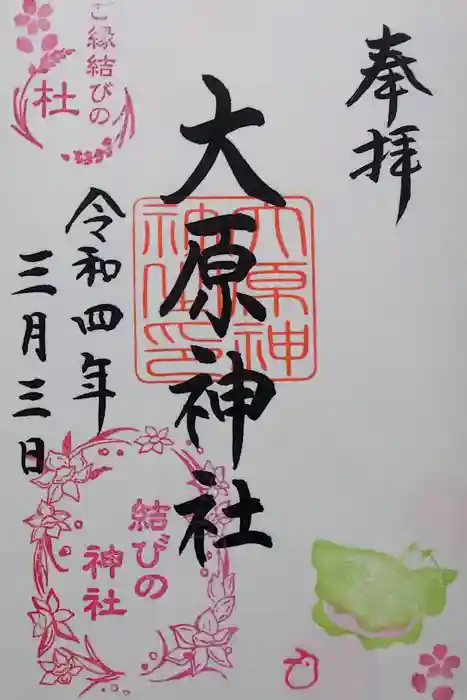 奉拝
大原神社
大原神社御印
令和四年
三月三日
ご縁結びの
杜
結びの
神社